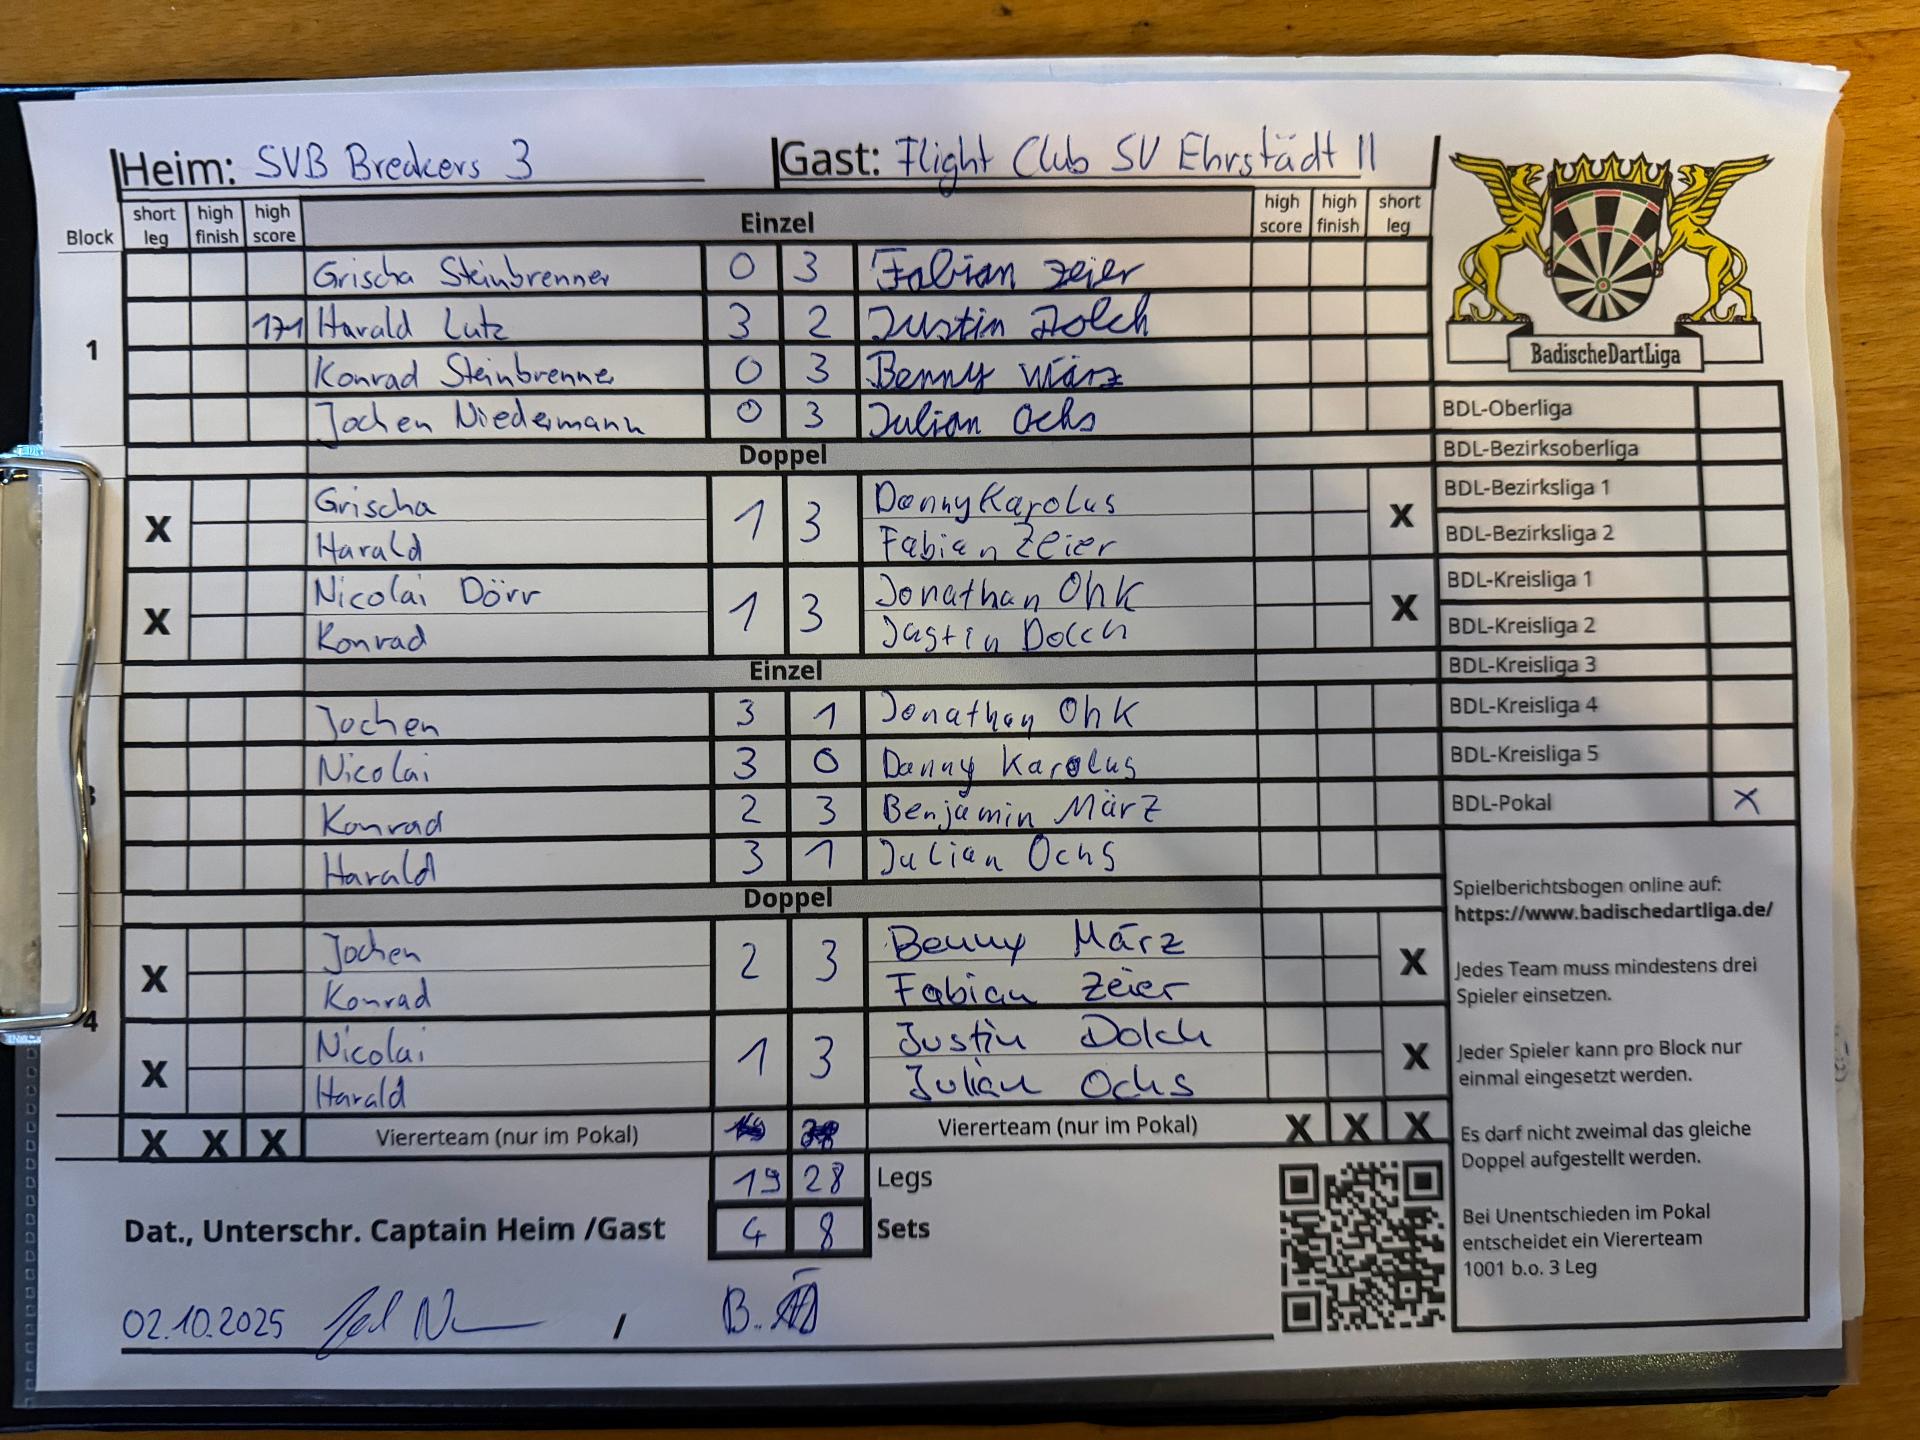 Heim: SVB Breakers 3 Gast: Flight Club SV Ehrstädt II
Block short leg high finish high score Einzel high score high finish short leg
Grischa Steinbrenner 0 3 Fabian Zeier
1 171 Harald Lutz 3 2 Justin Dolch
Konrad Steinbrenner 0 3 Benny März
Jochen Niedermann 0 3 Julian Ochs
Doppel
X Grischa 1 3 Danny Karolus X
Harald Fabian Zeier
X Nicolai Dörr 1 3 Jonathan Ohk X
Konrad Justin Dolch
Einzel
Jochen 3 1 Jonathan Ohk
Nicolai 3 0 Danny Karolus
3 Konrad 2 3 Benjamin März
Harald 3 1 Julian Ochs
Doppel
X Jochen 2 3 Benny März X
Konrad Fabian Zeier
4
X Nicolai 1 3 Justin Dolch X
Harald Julian Ochs
X X X Viererteam (nur im Pokal) Viererteam (nur im Pokal) X X X
19 28 Legs
Dat., Unterschr. Captain Heim /Gast 4 8 Sets
02.10.2025 / B.
BadischeDartLiga
BDL-Oberliga
BDL-Bezirksoberliga
BDL-Bezirksliga 1
BDL-Bezirksliga 2
BDL-Kreisliga 1
BDL-Kreisliga 2
BDL-Kreisliga 3
BDL-Kreisliga 4
BDL-Kreisliga 5
BDL-Pokal X
Spielberichtsbogen online auf:
https://www.badischedartliga.de/
Jedes Team muss mindestens drei
Spieler einsetzen.
Jeder Spieler kann pro Block nur
einmal eingesetzt werden.
Es darf nicht zweimal das gleiche
Doppel aufgestellt werden.
Bei Unentschieden im Pokal
entscheidet ein Viererteam
1001 b.o. 3 Leg